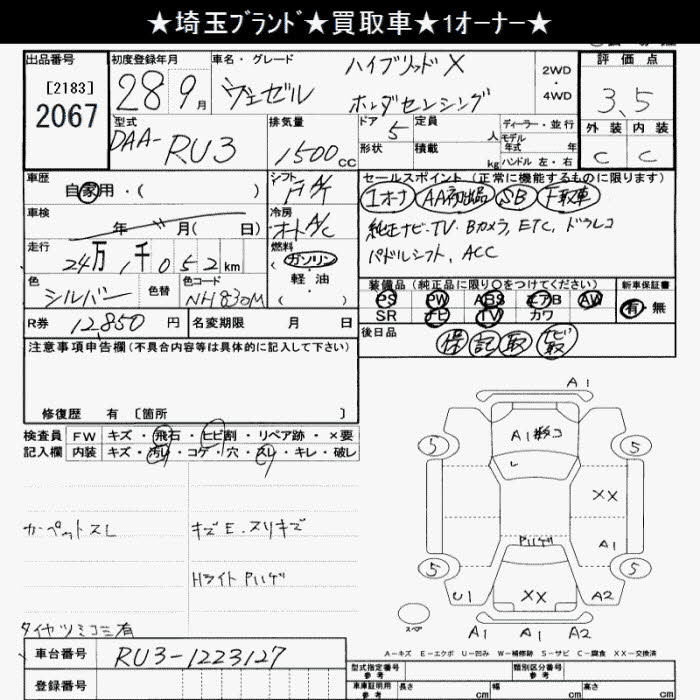 ★埼玉ﾌﾞﾗﾝﾄﾞ★買取車★1オーナー★
出品番号 初度登録年月 車名・グレード ハイブリッドX 2WD ・ 4WD 評価点
[2183] 2067 28 9月 ヴェゼル ホンダセンシング 3.5
型式 DAA-RU3 排気量 1500cc ドア 5 定員 人 ディーラー・並行 外装 内装
形状 積載 kg モデル年式 年 ハンドル 左・右 C C
車歴 自家用・( ) シフト FA/T セールスポイント（正常に機能するものに限ります）
1オーナ AA初出品 SB 下取車
車検 年 月( 日) 冷房 オートA/C 純正ナビ・TV・Bカメラ, ETC, ドラレコ
走行 24万1千052km 燃料 ガソリン パドルシフト, ACC
色 シルバー 色替 色コード NH830M 軽・油 ( )
装備品（純正品に限り○をつけてください） 新車保証書
PS PW ABS エアB AW 有・無
SR ナビ TV カワ
R券 12,850円 名変期限 月 日 後日品 保 記 取 ナビ取
注意事項申告欄（不具合内容等は具体的に記入して下さい）
修復歴 有 〔箇所 〕
検査員 FW キズ・飛石・ヒビ割・リペア跡・×要
記入欄 内装 キズ・汚れ・コゲ・穴・スレ・キレ・破レ
カーペットスレ キズE・スリキズ
HライトPハゲ
タイヤツミコミ有
車台番号 RU3-1223127
登録番号
A1
A1数コ
5 5
XX
A1
Pハゲ
5 5
U1 XX A2
スペア
A1 A1 A2
A－キズ E－エクボ U－凹み W－補修跡 S－サビ C－腐食 XX－交換済
型式指定番号 参考 類別区分番号 参考
車庫証明用 参考 長さ cm 幅 cm 高さ cm